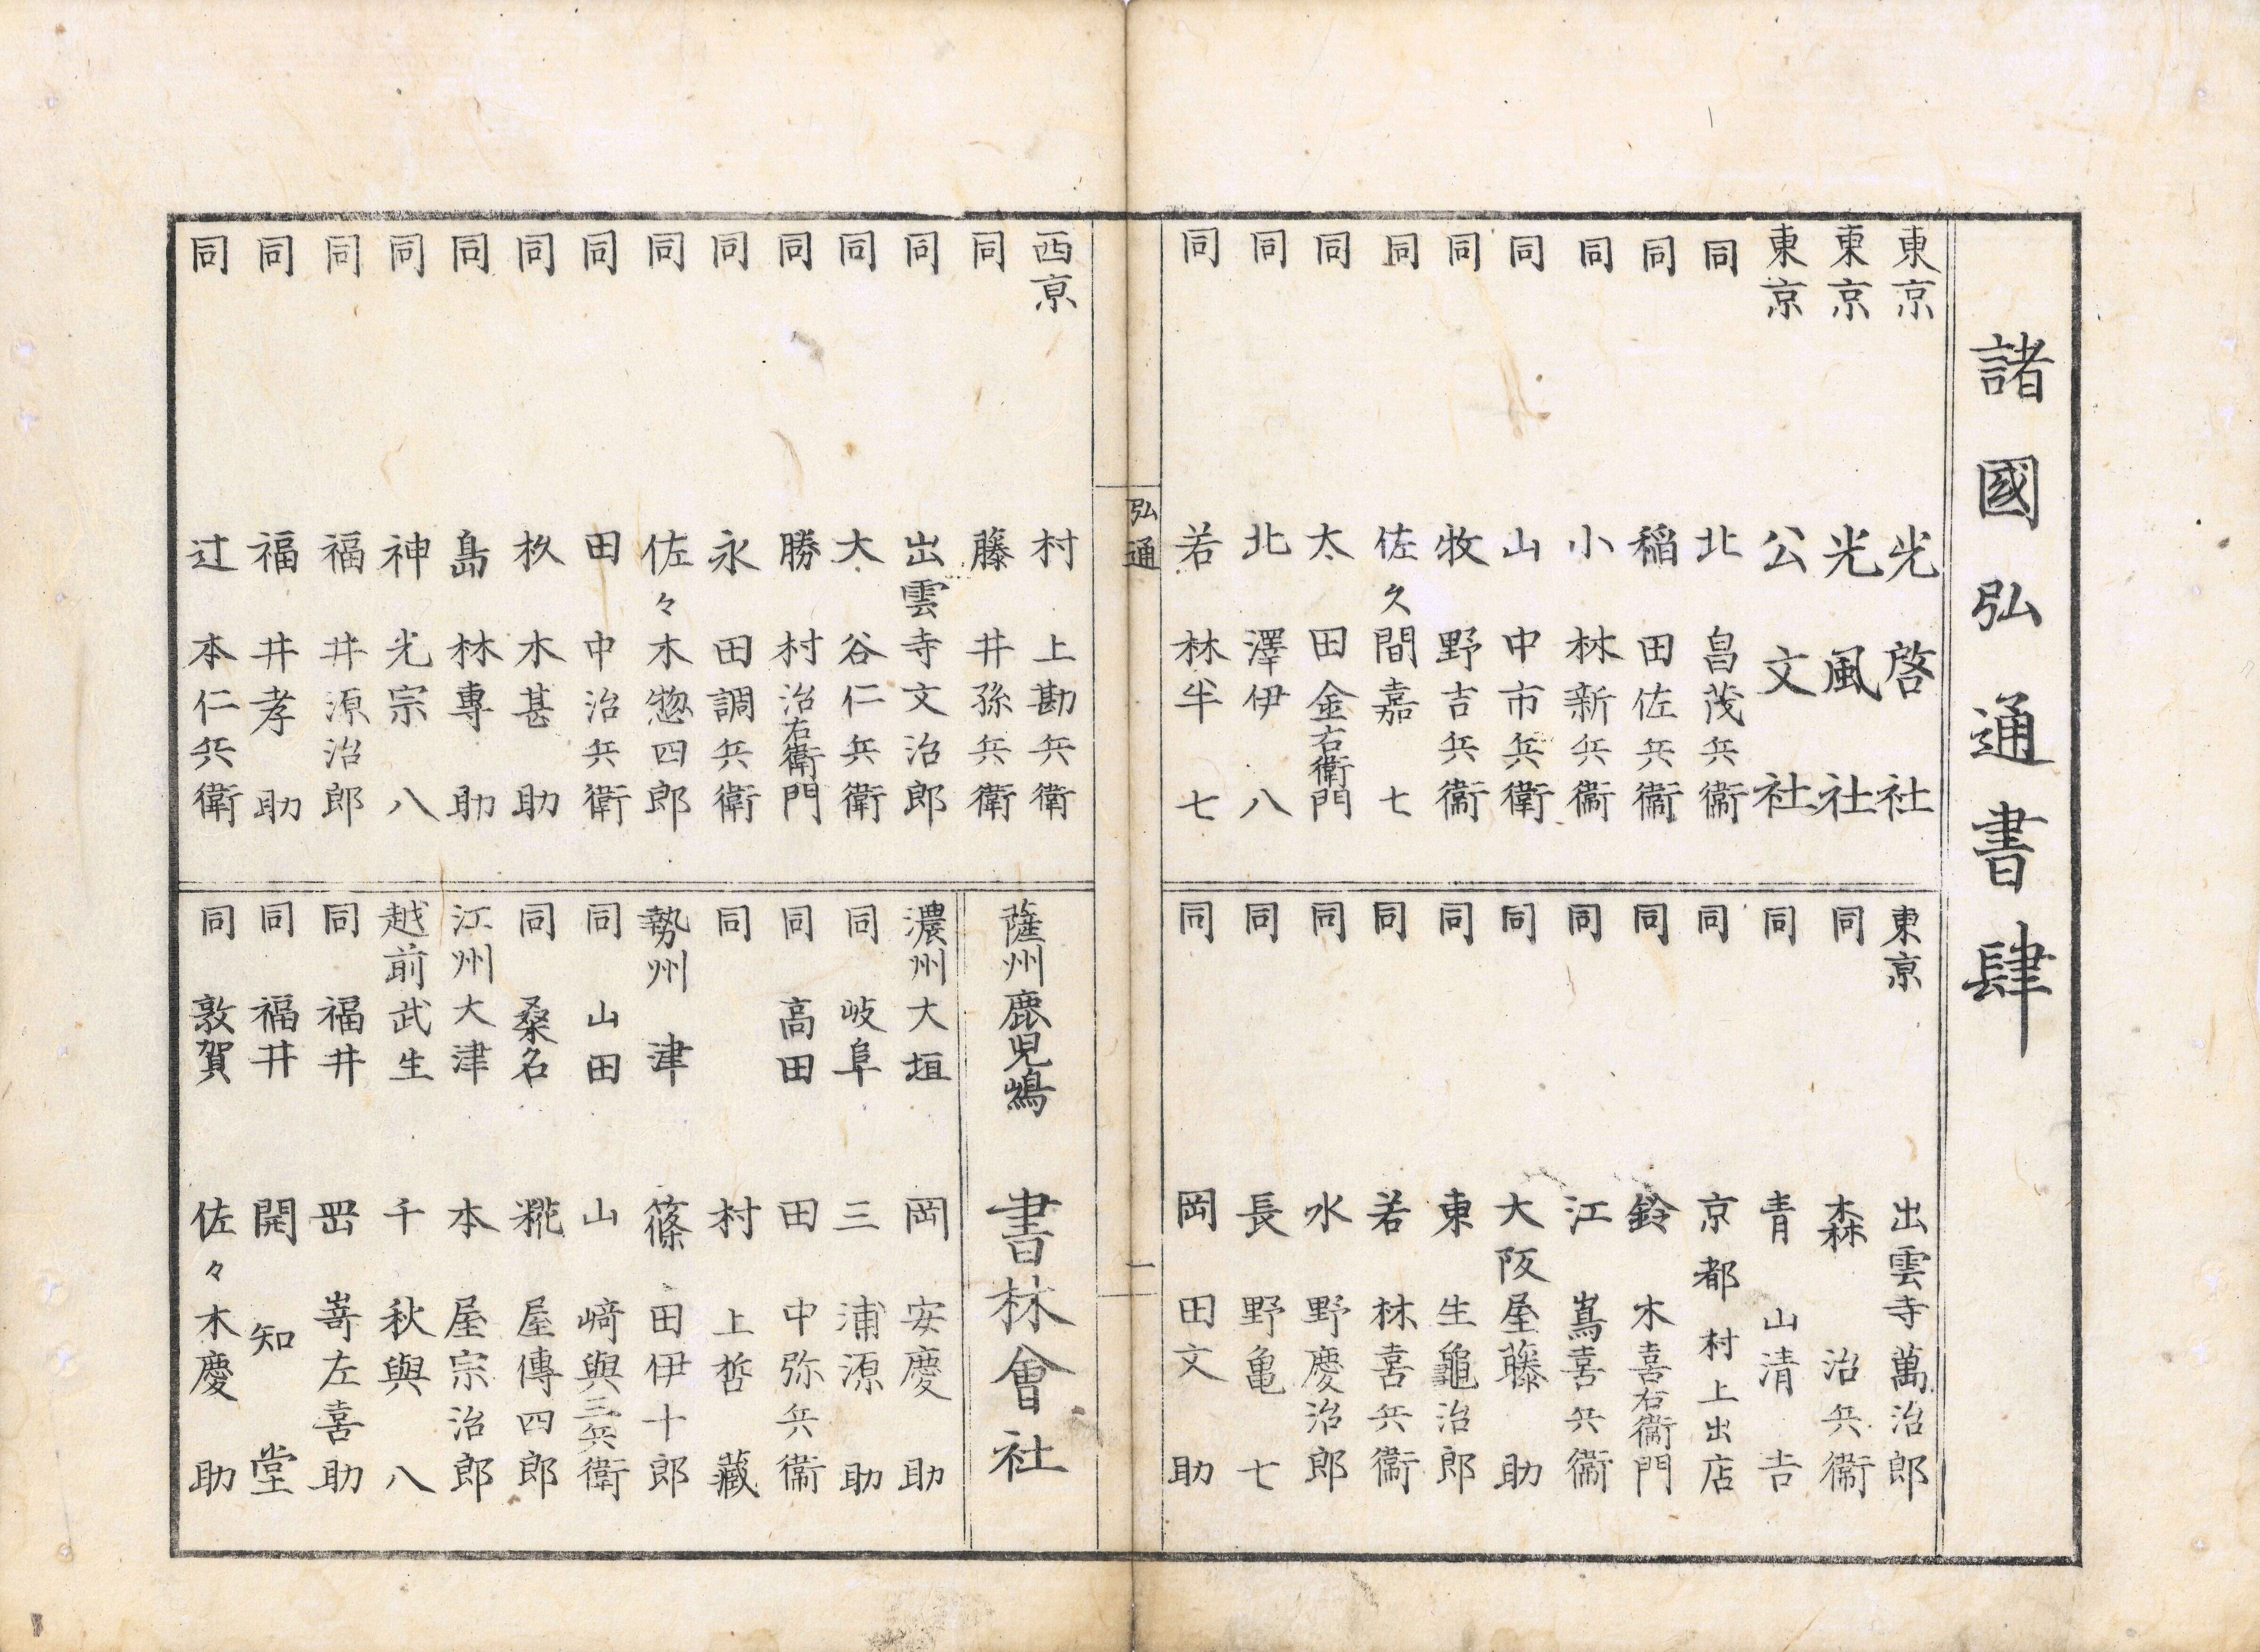 諸國弘通書肆
東京 光啓社
東京 光風社
東京 公文社
同 北畠茂兵衞
同 稲田佐兵衞
同 小林新兵衞
同 山中市兵衛
同 牧野吉兵衞
同 佐久間嘉七
同 太田金右衛門
同 北澤伊八
同 若林半七
東京 出雲寺萬治郎
同 森治兵衞
同 青山清吉
同 京都村上出店
同 鈴木喜右衞門
同 江嶌喜兵衞
同 大阪屋藤助
同 東生龜治郎
同 若林喜兵衞
同 水野慶治郎
同 長野亀七
同 岡田文助
弘通 一
西京 村上勘兵衛
同 藤井孫兵衛
同 出雲寺文治郎
同 大谷仁兵衛
同 勝村治右衛門
同 永田調兵衛
同 佐々木惣四郎
同 田中治兵衛
同 杦木甚助
同 島林専助
同 神光宗八
同 福井源治郎
同 福井孝助
同 辻本仁兵衛
薩州鹿児嶋 書林會社
濃州大垣 岡安慶助
同 岐阜 三浦源助
同 高田 田中弥兵衞
同 村上哲藏
勢州 津 篠田伊十郎
同 山田 山﨑與三兵衛
同 桑名 糀屋傳四郎
江州大津 本屋宗治郎
越前武生 千秋與八
同 福井 岡嵜左喜助
同 福井 開知堂
同 敦賀 佐々木慶助